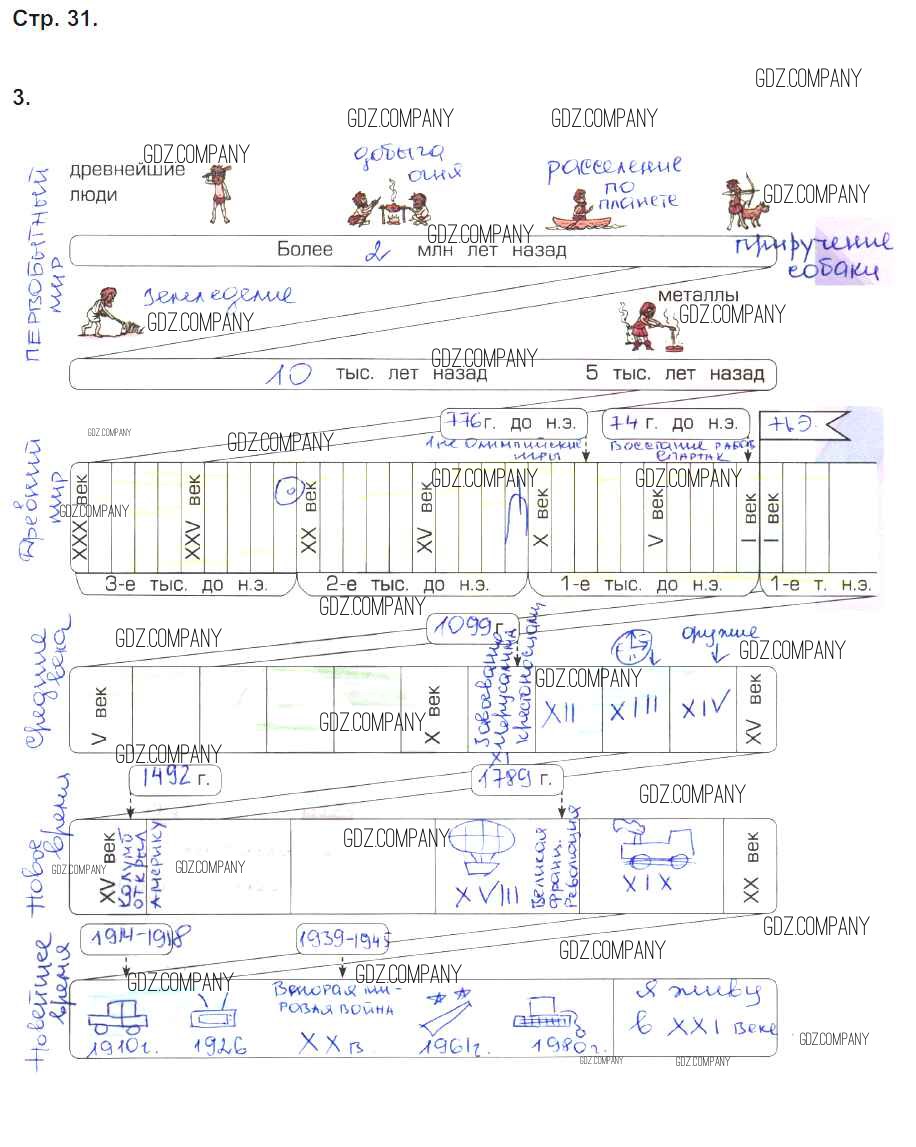 Стр. 31.
GDZ.COMPANY
3.
GDZ.COMPANY
GDZ.COMPANY
GDZ.COMPANY
добыча
огня
расселение
по
планете
древнейшие
люди
GDZ.COMPANY
ПЕРВОБЫТНЫЙ
МИР
GDZ.COMPANY
Более 2 млн лет назад
приручение
собаки
земледелие
металлы
GDZ.COMPANY
GDZ.COMPANY
GDZ.COMPANY
10 тыс. лет назад
5 тыс. лет назад
776 г. до н.э.
74 г. до н.э.
н.э.
GDZ.COMPANY
GDZ.COMPANY
1-ые Олимпийские
игры
Восстание рабов
Спартак
Древний
мир
GDZ.COMPANY
GDZ.COMPANY
GDZ.COMPANY
XXX век
XXV век
XX век
XV век
X век
V век
I век
I век
3-е тыс. до н.э.
2-е тыс. до н.э.
1-е тыс. до н.э.
1-е т. н.э.
GDZ.COMPANY
1099 г.
GDZ.COMPANY
оружие
GDZ.COMPANY
Средние
века
Завоевание
Иерусалима
крестоносцами
GDZ.COMPANY
V век
X век
XI
XII
XIII
XIV
XV век
GDZ.COMPANY
GDZ.COMPANY
1492 г.
1789 г.
GDZ.COMPANY
Новое
время
GDZ.COMPANY
GDZ.COMPANY
GDZ.COMPANY
XV век
Колумб
открыл
Америку
XVIII
Великая
франц.
Революция
XIX
XX век
GDZ.COMPANY
1914-1918
1939-1945
GDZ.COMPANY
Новейшее
время
GDZ.COMPANY
GDZ.COMPANY
Вторая ми-
ровая война
Я живу
в XXI веке
1910г.
1926
XX в.
1961г.
1980г.
GDZ.COMPANY
GDZ.COMPANY
GDZ.COMPANY